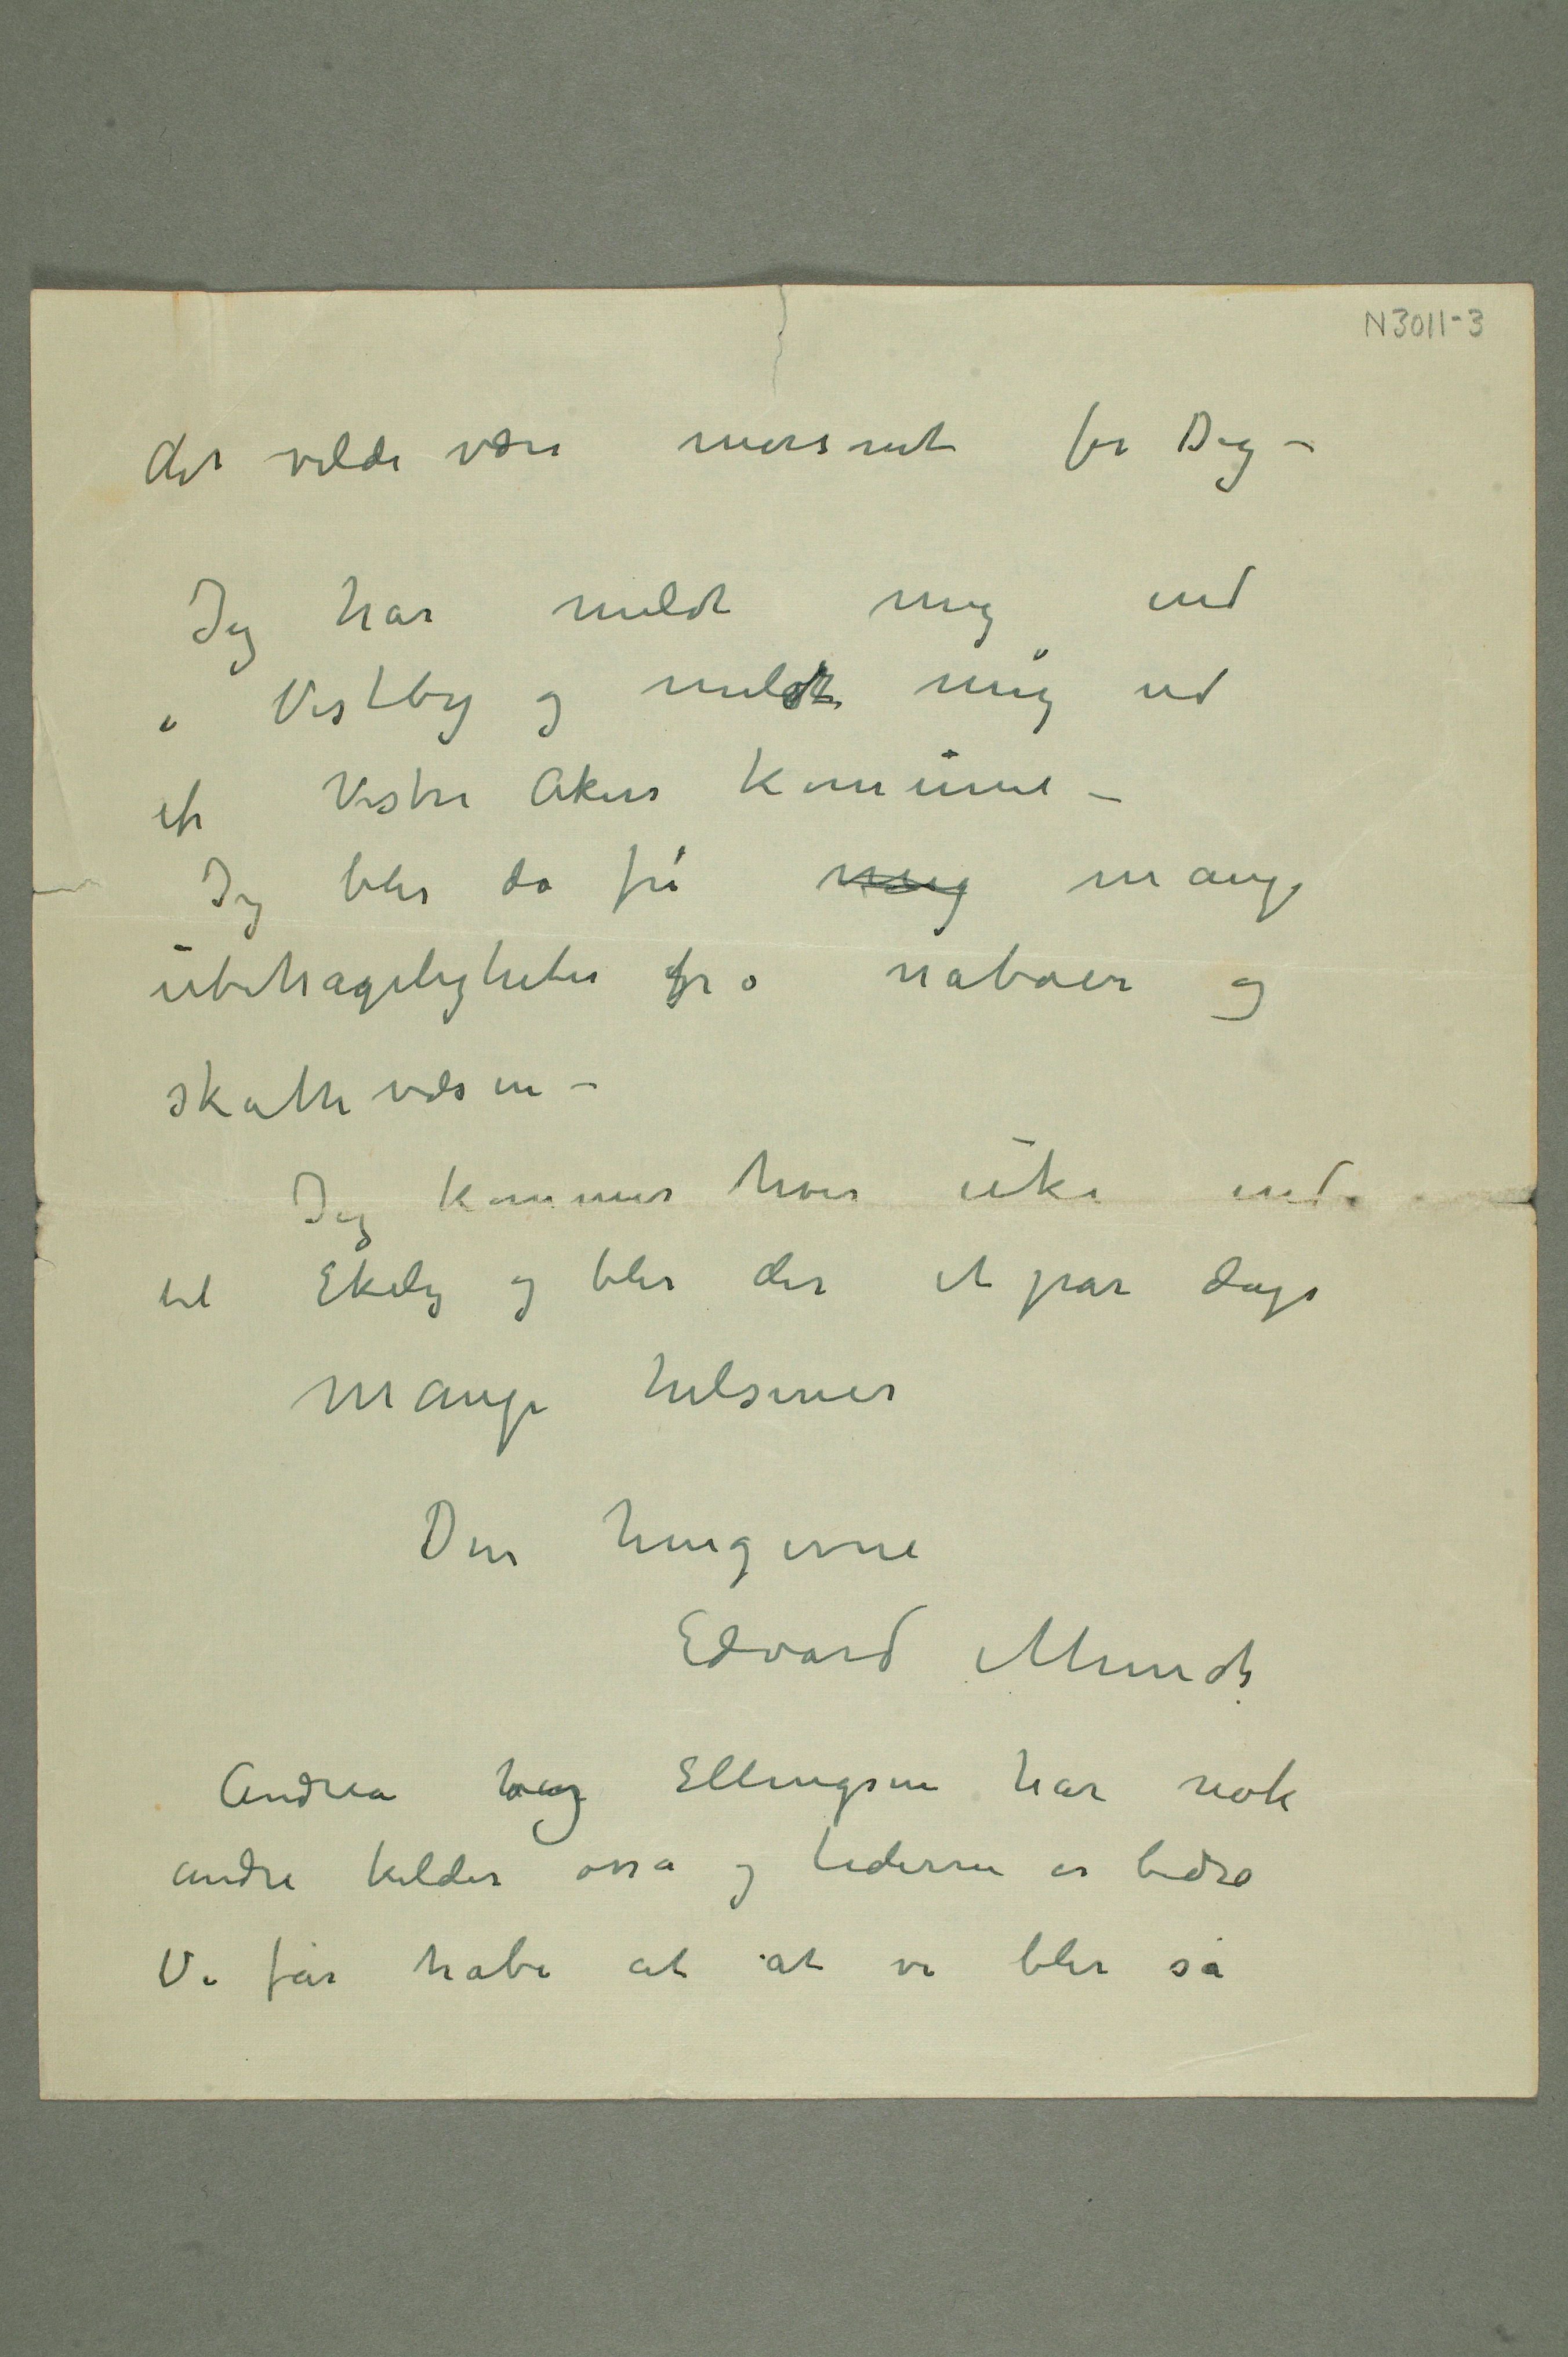 N3011-3
det vilde være morsomt for Dig –
Jeg har meldt mig ind
i Vestby og meldt mig ud
af Vestre Akers Komune –
Jeg blir da fri mange
ubehageligheter fra naboer og
skattevæsen –
Jeg kommer hver uke ind
til Ekely og blir der et par dage
Mange hilsener
Din hengivne
Edvard Munch
Andrea Ellingsen har nok
andre kilder osså og tiderne er bedre
Vi får håbe at at vi blir så